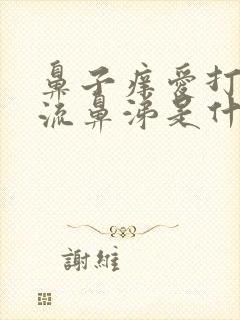 鼻子痒愛打
流鼻涕是什
謝維